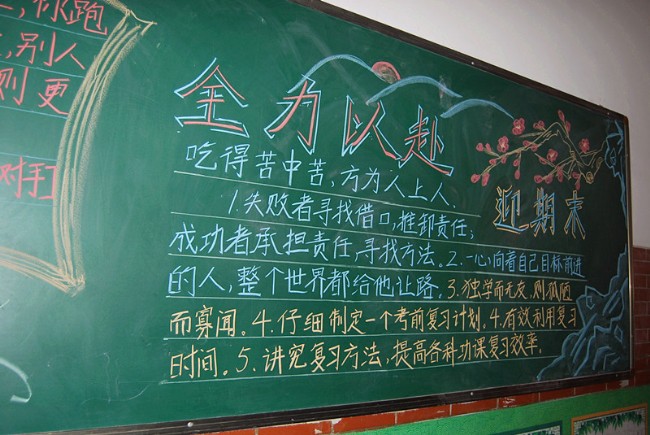 ，你跑
，别人
则更
对手
全力以赴
吃得苦中苦，方为人上人．
迎期末
1.失败者寻找借口，推卸责任；
成功者承担责任，寻找方法。2.一心向着自己目标前进
的人，整个世界都给他让路。3.独学而无友，则孤陋
而寡闻。4.仔细制定一个考前复习计划。4.有效利用复习
时间。5.讲究复习方法，提高各科功课复习效率。